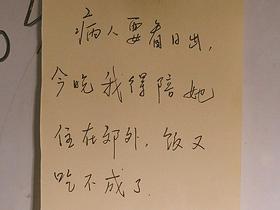 病人要看日出,
今晚我得陪她
住在郊外，饭又
吃不成了.